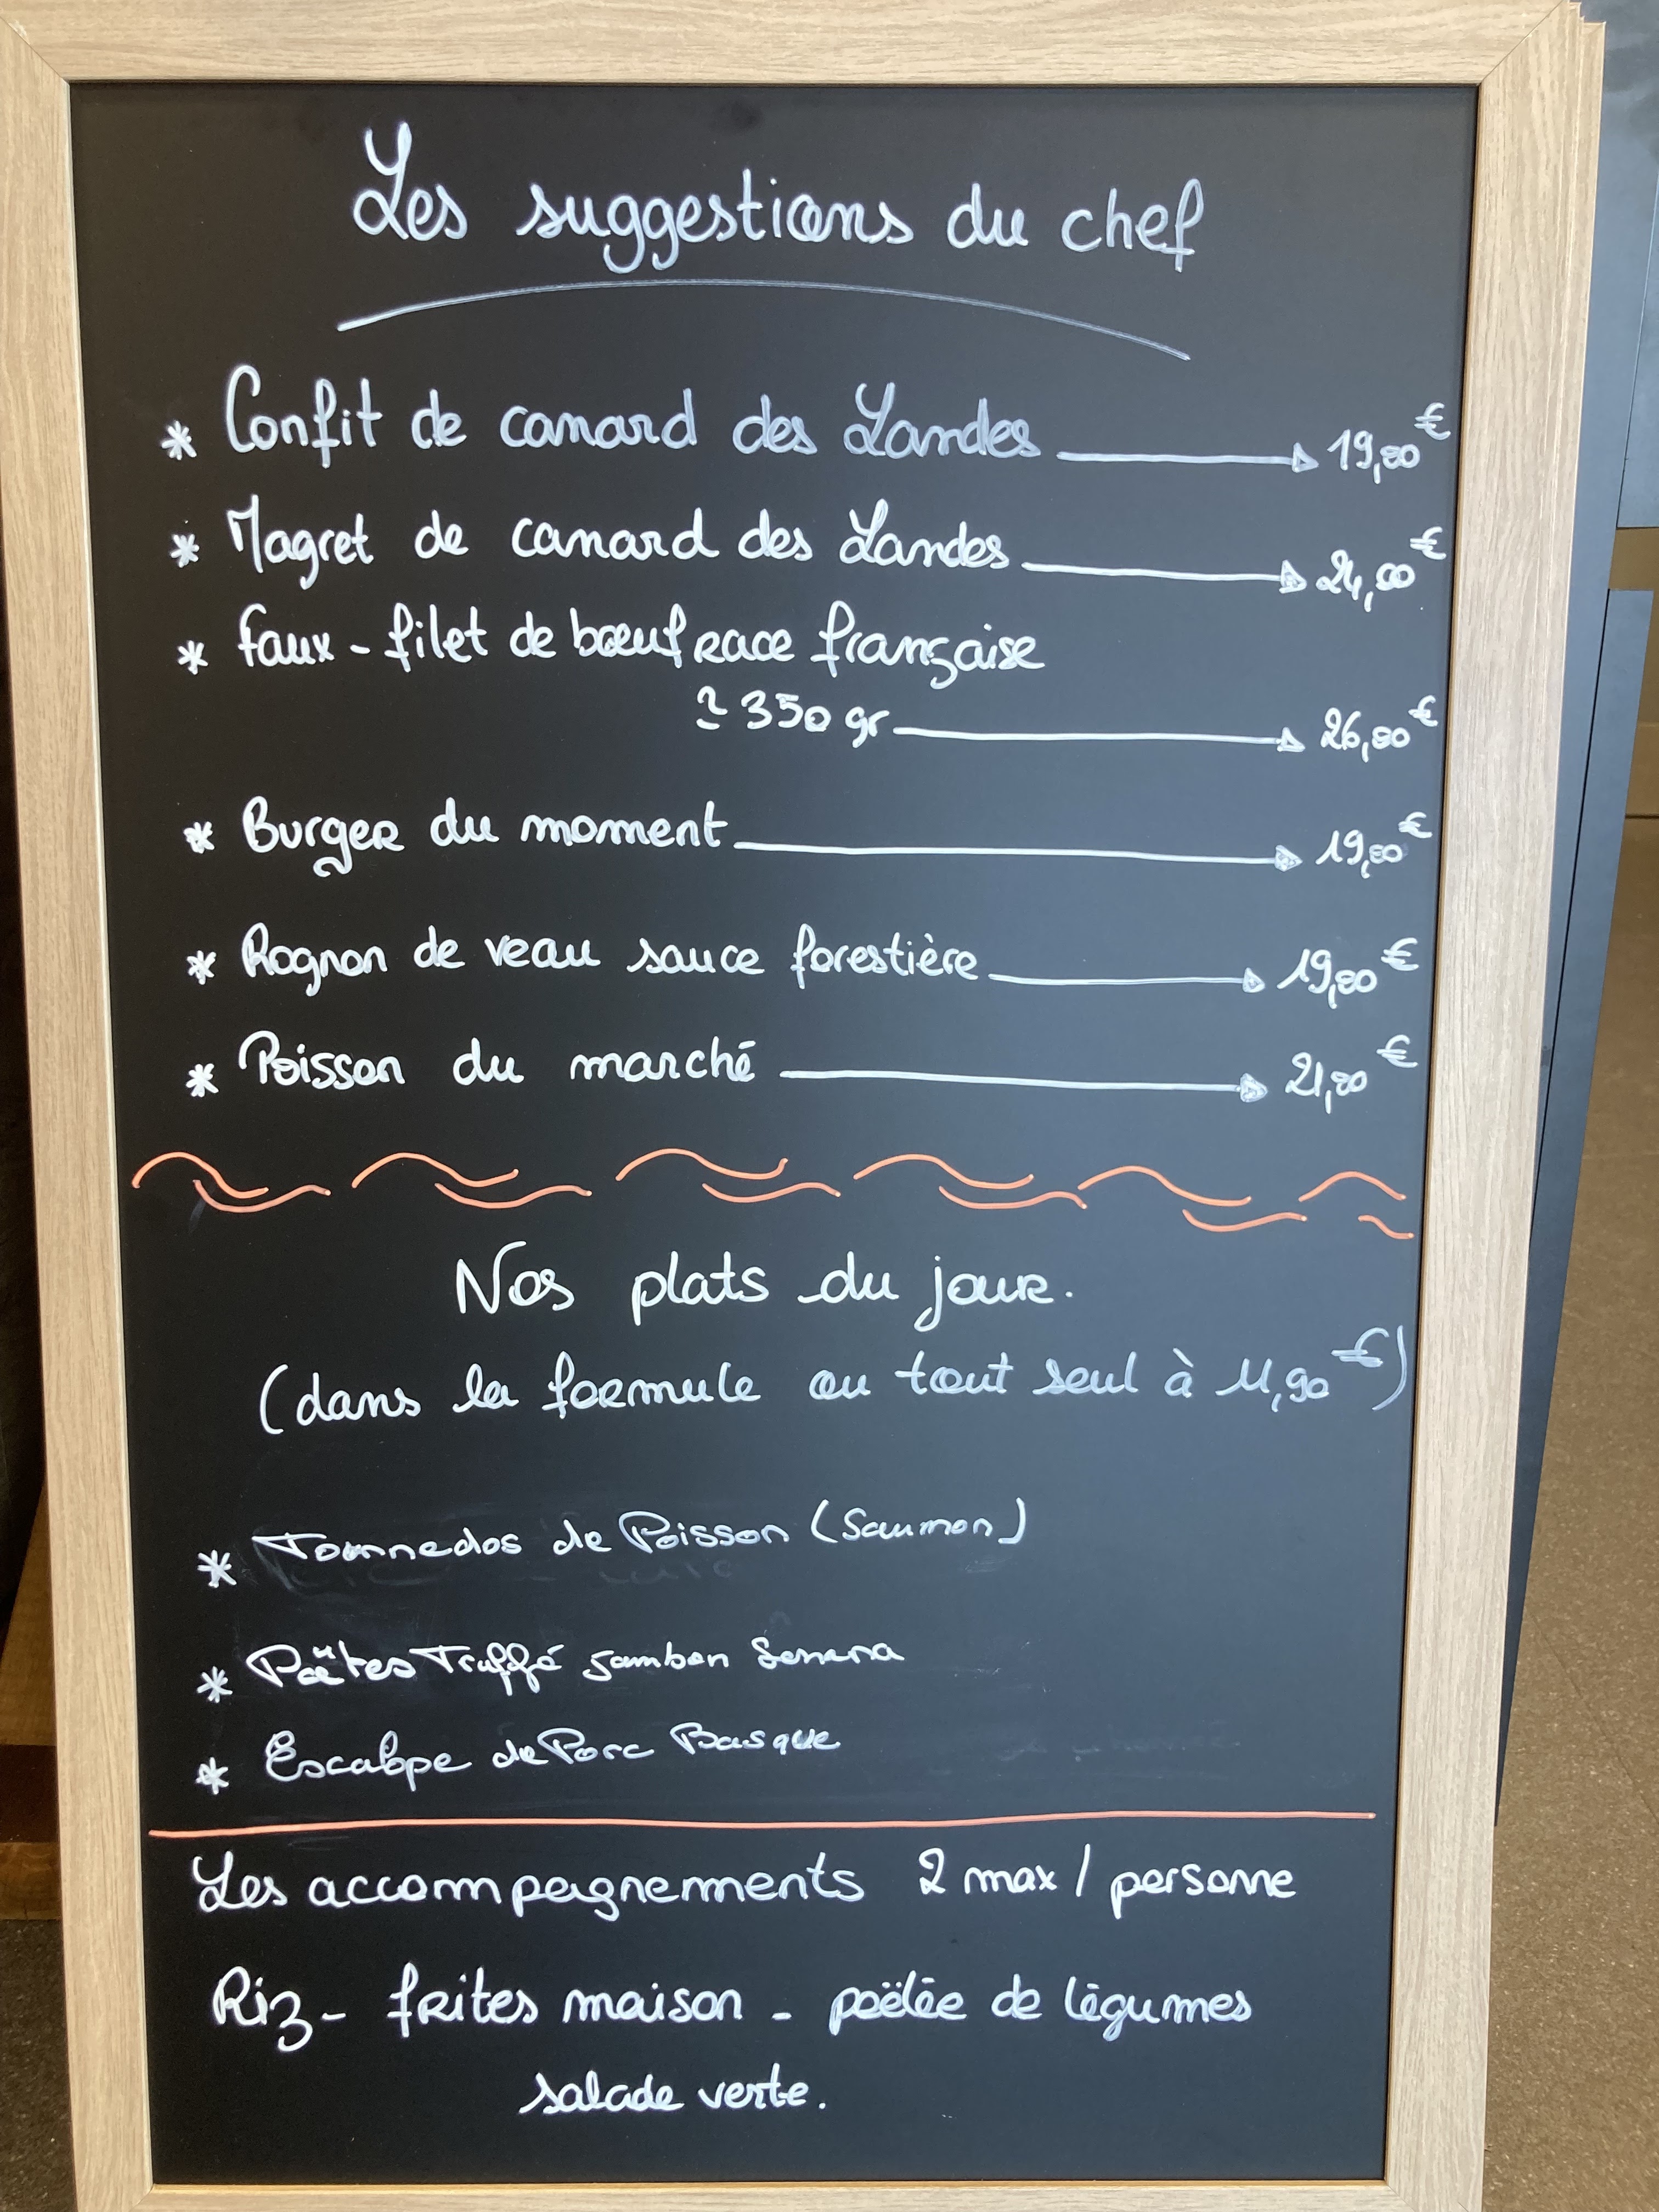 Les suggestions du chef
* Confit de canard des Landes → 19,80€
* Magret de canard des Landes → 24,00€
* Faux-filet de bœuf race française
≃ 350 gr → 26,80€
* Burger du moment → 19,80€
* Rognon de veau sauce forestière → 19,80€
* Poisson du marché → 21,80€
Nos plats du jour.
(dans la formule ou tout seul à 11,90€)
* Tournedos de Poisson (Saumon)
* Pâtes Truffé Jambon Serrano
* Escalope de Porc Basque
Les accompagnements 2 max / personne
Riz - frites maison - poëlée de légumes
salade verte.